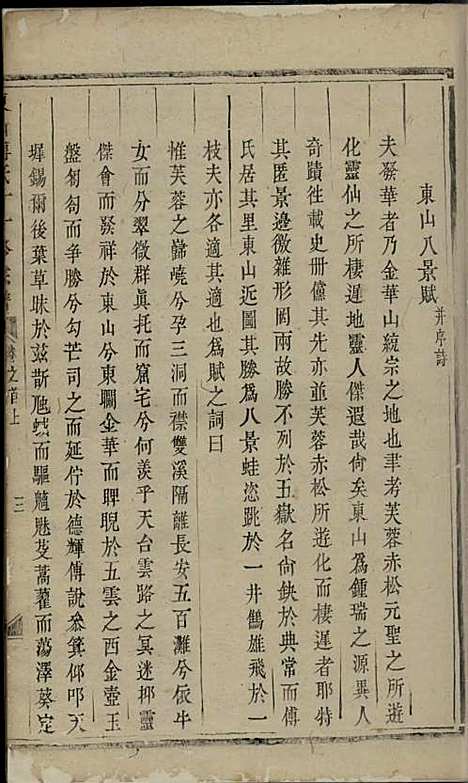 東山八景賦 并序詩
夫發華者乃金華山統宗之地也聿考芙蓉赤松元聖之所遊
化靈仙之所棲遲地靈人傑遐哉尚矣東山為鍾瑞之源異人
奇蹟徃載史册儻其所產並芙蓉赤松所遊化而棲遲者耶特
其匿景邊徼雜形罔兩故勝不列於五嶽名尚鈌於典常而傅
氏居其里東山近圖其勝為八景蛙恣跳於一井鷦雄飛於一
枝夫亦各適其適也為賦之詞曰
惟芙蓉之巋嶢兮孕三洞而襟雙溪隔離長安五百灘兮依牛
女而分翠微群真托而窟宅兮何羨乎天台雲路之冥迷抑靈
傑會而發祥於東山兮東矙金華而睥睨於五雲之西金壺玉
盤匒匌而争勝兮勾芒司之而延佇於德輝傅說叅箕仰叩天
墀錫爾後葉草昧於茲斮虺蜮而驅魑魅芟蒿藋而蕩澤葵定
之首上
三